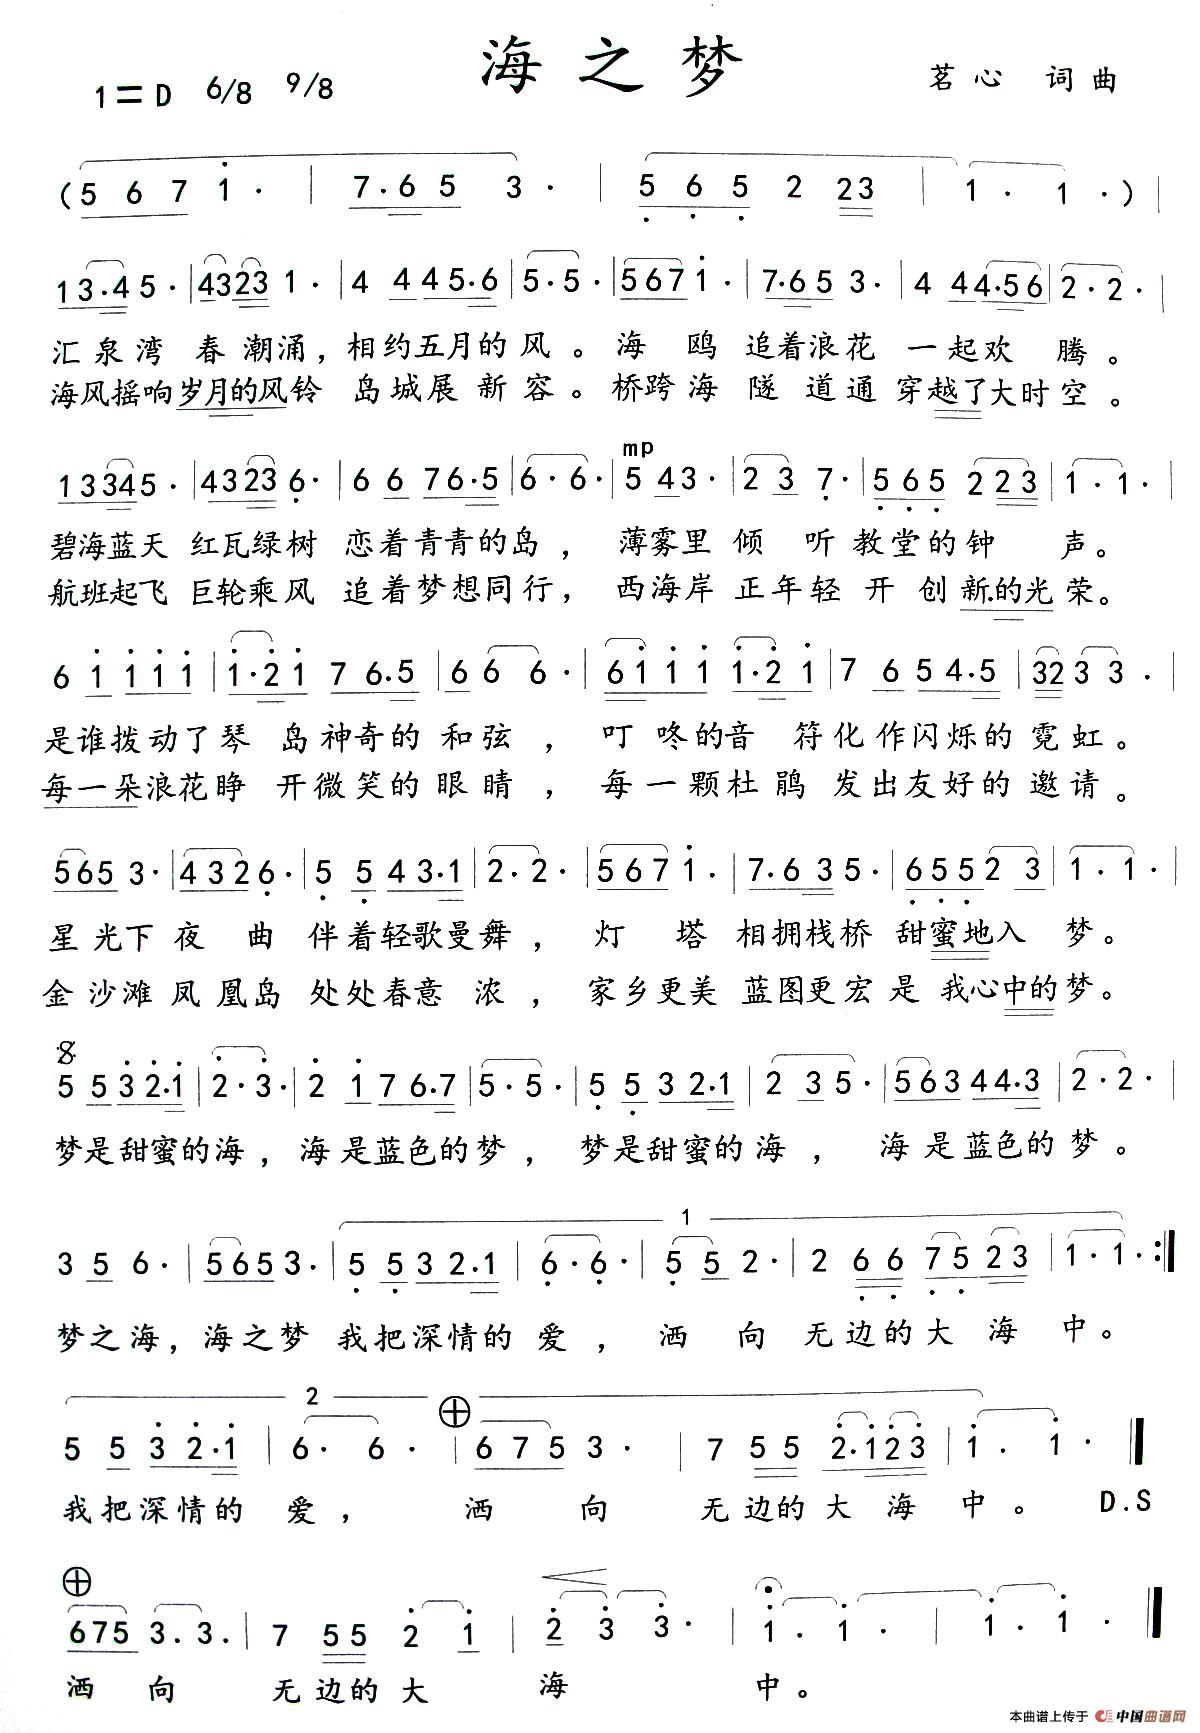 海之梦
1=D 6/8 9/8 茗心 词曲
(5 6 7 1· | 7·6 5 3· | 5 6 5 2 23 | 1· 1·) |
13·45· | 4323 1· | 4 445·6 | 5·5· | 5671· | 7·653· | 4 44·56 | 2·2· |
汇泉湾 春潮涌，相约五月的风。海 鸥 追着浪花 一起欢 腾。
海风摇响岁月的风铃 岛城展 新容。桥跨海 隧 道通 穿越了大时空。
mp
13345· | 4323 6· | 6 6 76·5 | 6·6· | 5 43· | 2 3 7· | 565 223 | 1·1· |
碧海蓝天 红瓦绿树 恋着青青的岛，薄雾里 倾 听 教堂的钟 声。
航班起飞 巨轮乘风 追着梦想同行，西海岸 正年轻 开 创 新的光荣。
6 1 1 1 1 | 1·2 1 7 6·5 | 6 6 6· | 6 1 1 1 1·2 1 | 7 6 54·5 | 32 3 3· |
是谁拨动了琴 岛神奇的 和弦，叮 咚的音 符化作闪烁的 霓虹。
每一朵浪花睁 开微笑的 眼睛，每一颗杜鹃 发出友好的 邀请。
565 3· | 4326· | 5 5 43·1 | 2·2· | 5671· | 7·635· | 65523 | 1·1· |
星光下 夜 曲 伴着轻歌曼舞，灯 塔 相拥栈桥 甜蜜地入 梦。
金沙滩 凤凰岛 处处春意 浓，家乡更美 蓝图更宏是 我心中的梦。
5 532·1 | 2·3· | 2 176·7 | 5·5· | 5 5 32·1 | 2 35· | 56344·3 | 2·2· |
梦是甜蜜的海，海是蓝色的梦，梦是甜蜜的海，海是蓝色的梦。
1
3 5 6· | 5653· | 5 532·1 | 6·6· | 55 2· | 2 66 75 23 | 1·1· :|
梦之海，海之梦 我把深情的 爱，洒 向 无边的大 海 中。
2
5 5 3 2·1 | 6· 6· | 675 3· | 7 55 2·123 | 1· 1· ‖
我把深情的 爱，洒 向 无边的大 海 中。 D.S
675 3·3· | 7 55 2 1 | 2 3 3· | 1· 1· | 1· 1· ‖
洒 向 无边的大 海 中。
本曲谱上传于 中国曲谱网